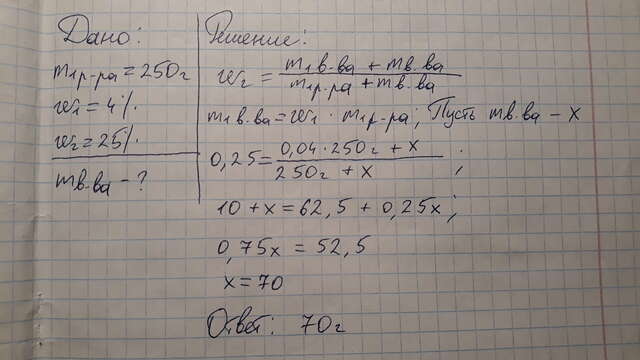 Дано:
m₁р-ра = 250г
w₁ = 4%
w₂ = 25%
mв.ва - ?
Решение:
w₂ = (m₁в.ва + mв.ва) / (m₁р.ра + mв.ва)
m₁в.ва = w₁ · m₁р-ра; Пусть mв.ва - x
0,25 = (0,04·250г + x) / (250г + x);
10 + x = 62,5 + 0,25x;
0,75x = 52,5
x = 70
Ответ: 70г